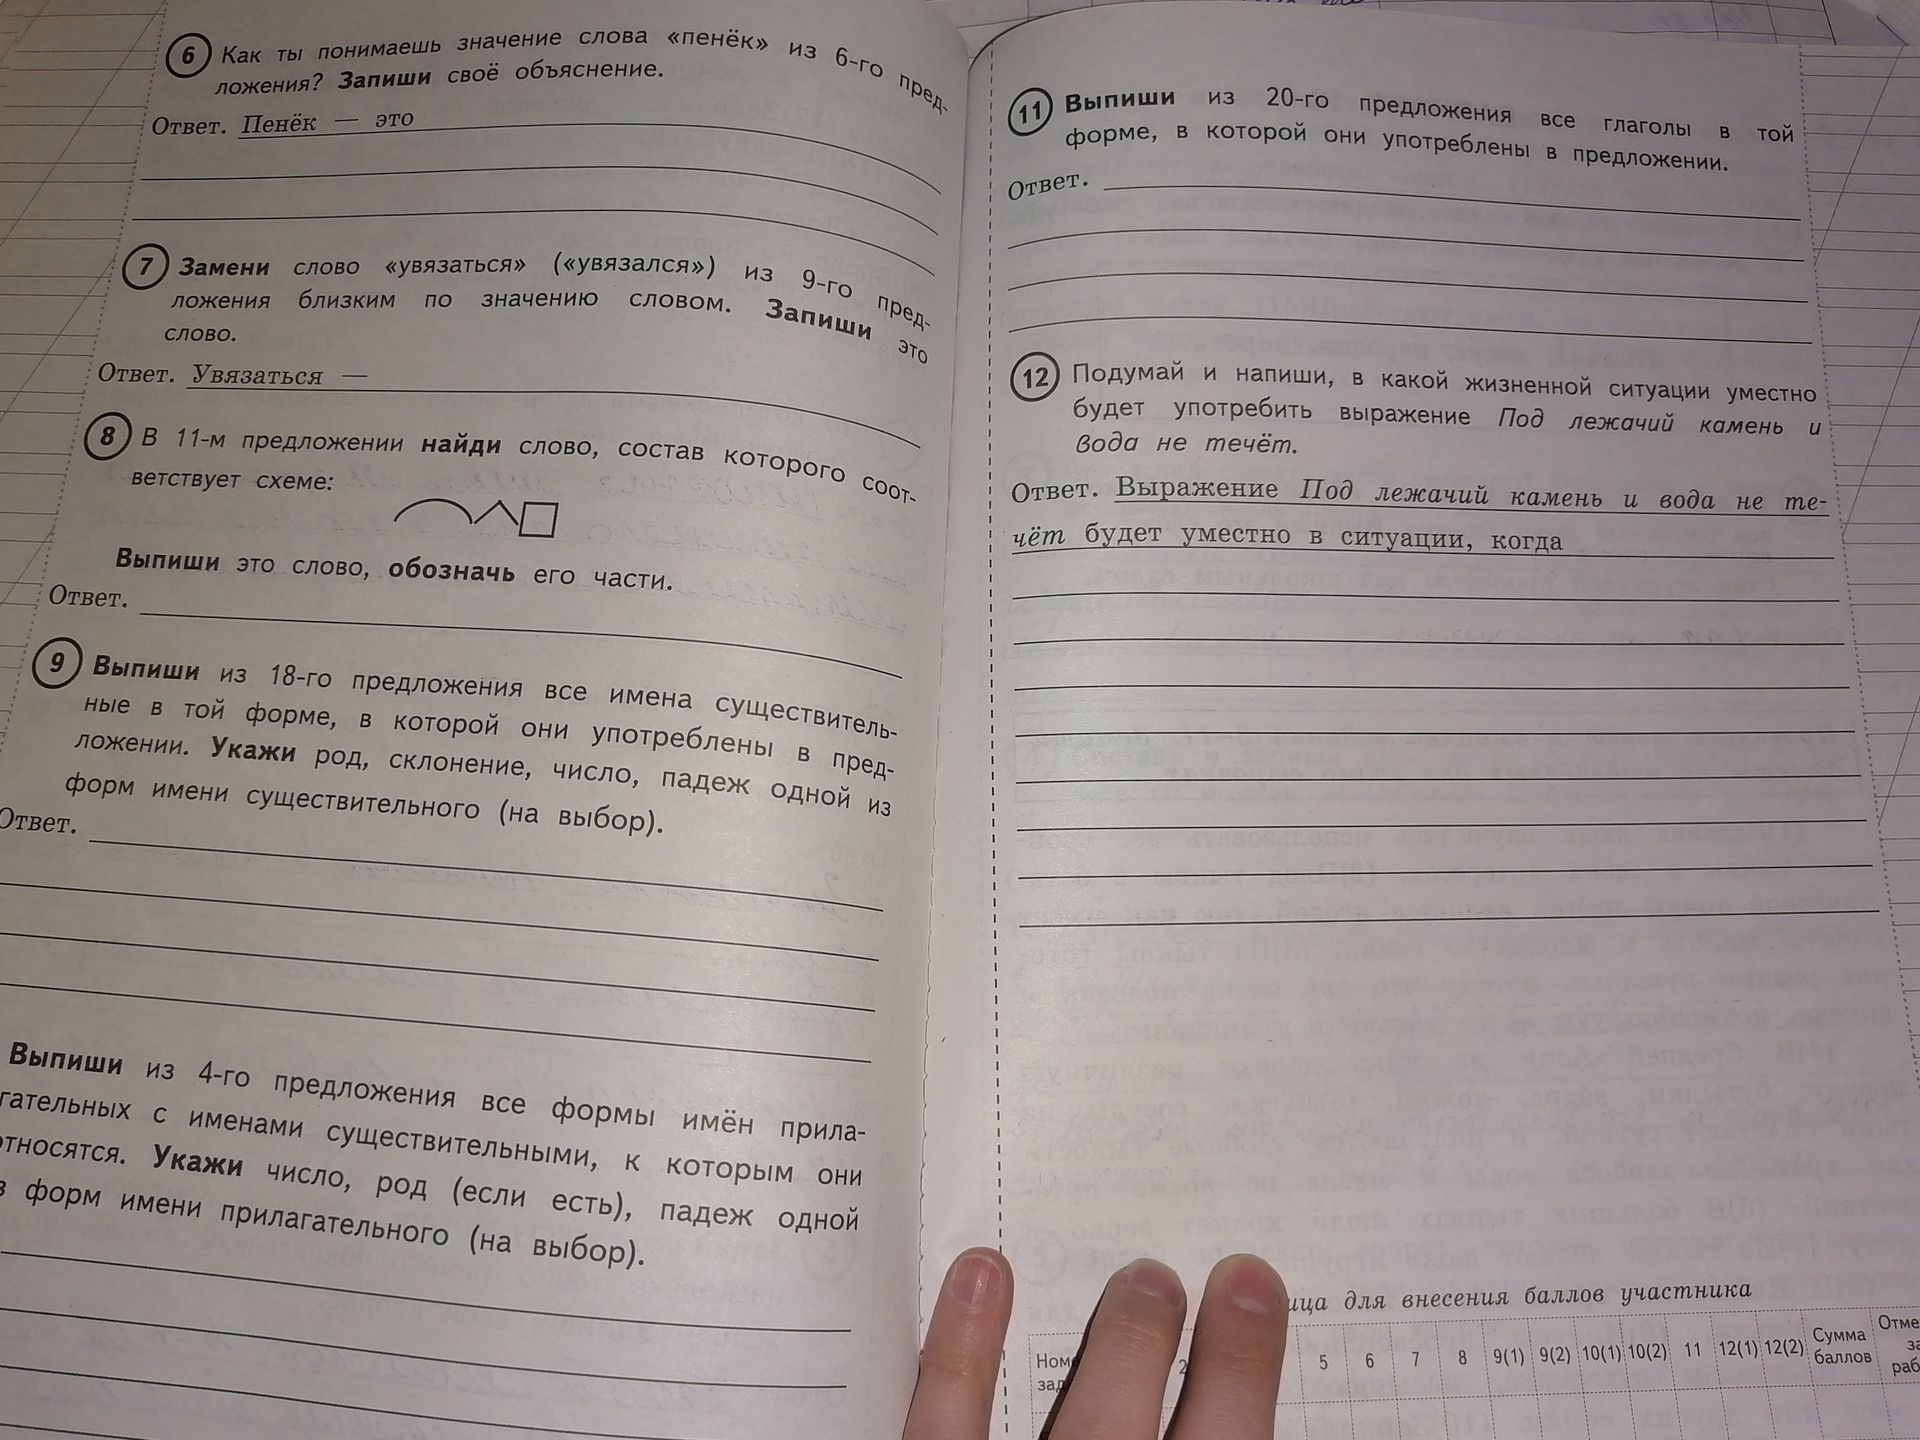 6 Как ты понимаешь значение слова «пенёк» из 6-го пред-
ложения? Запиши своё объяснение.
Ответ. Пенёк — это
7 Замени слово «увязаться» («увязался») из 9-го пред-
ложения близким по значению словом. Запиши это
слово.
Ответ. Увязаться —
8 В 11-м предложении найди слово, состав которого соот-
ветствует схеме:
Выпиши это слово, обозначь его части.
Ответ.
9 Выпиши из 18-го предложения все имена существитель-
ные в той форме, в которой они употреблены в пред-
ложении. Укажи род, склонение, число, падеж одной из
форм имени существительного (на выбор).
Ответ.
Выпиши из 4-го предложения все формы имён прила-
гательных с именами существительными, к которым они
относятся. Укажи число, род (если есть), падеж одной
з форм имени прилагательного (на выбор).
11 Выпиши из 20-го предложения все глаголы в той
форме, в которой они употреблены в предложении.
Ответ.
12 Подумай и напиши, в какой жизненной ситуации уместно
будет употребить выражение Под лежачий камень и
вода не течёт.
Ответ. Выражение Под лежачий камень и вода не те-
чёт будет уместно в ситуации, когда
ица для внесения баллов участника
Номе 2 5 6 7 8 9(1) 9(2) 10(1) 10(2) 11 12(1) 12(2) Сумма Отме
зад баллов за
раб